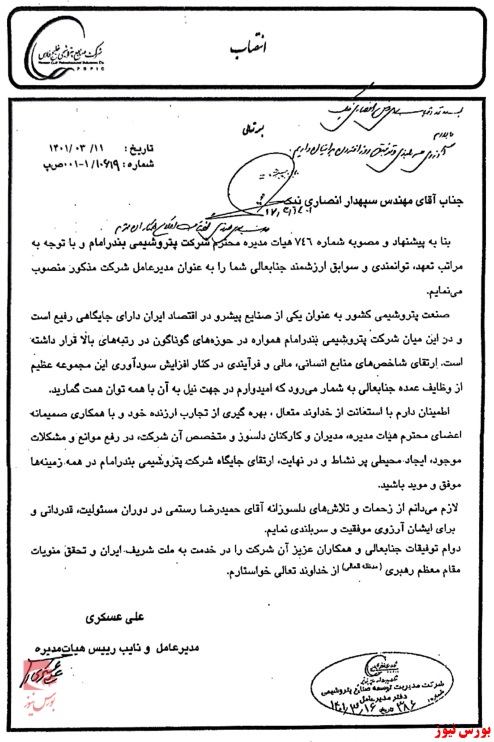 انتصاب
شرکت صنایع پتروشیمی خلیج فارس
Persian Gulf Petrochemical Industries Co.
P G P I C
بسمه تعالی
تاریخ: ۱۴۰۱/۰۳/۱۱
شماره: ۰۰۱-۱/۱۰۶۱۹ص‌پ
جناب آقای مهندس سپهدار انصاری نیک
بنا به پیشنهاد و مصوبه شماره ۷۴۶ هیات مدیره محترم شرکت پتروشیمی بندرامام و با توجه به
مراتب تعهد، توانمندی و سوابق ارزشمند جنابعالی شما را به عنوان مدیرعامل شرکت مذکور منصوب
می‌نمایم.
صنعت پتروشیمی کشور به عنوان یکی از صنایع پیشرو در اقتصاد ایران دارای جایگاهی رفیع است
و در این میان شرکت پتروشیمی بندرامام همواره در حوزه‌های گوناگون در رتبه‌های بالا قرار داشته
است. ارتقای شاخص‌های منابع انسانی، مالی و فرآیندی در کنار افزایش سودآوری این مجموعه عظیم
از وظایف عمده جنابعالی به شمار می‌رود که امیدوارم در جهت نیل به آن با همه توان همت گمارید.
اطمینان دارم با استعانت از خداوند متعال ، بهره گیری از تجارب ارزنده خود و با همکاری صمیمانه
اعضای محترم هیات مدیره، مدیران و کارکنان دلسوز و متخصص آن شرکت، در رفع موانع و مشکلات
موجود، ایجاد محیطی پر نشاط و در نهایت، ارتقای جایگاه شرکت پتروشیمی بندرامام در همه زمینه‌ها
موفق و موید باشید.
لازم می‌دانم از زحمات و تلاش‌های دلسوزانه آقای حمیدرضا رستمی در دوران مسئولیت، قدردانی و
برای ایشان آرزوی موفقیت و سربلندی نمایم.
دوام توفیقات جنابعالی و همکاران عزیز آن شرکت را در خدمت به ملت شریف ایران و تحقق منویات
مقام معظم رهبری (مدظله العالی) از خداوند تعالی خواستارم.
علی عسکری
مدیرعامل و نایب رییس هیات‌مدیره
شرکت مدیریت توسعه صنایع پتروشیمی
دفتر مدیرعامل
بورس نیوز
بورس نیوز